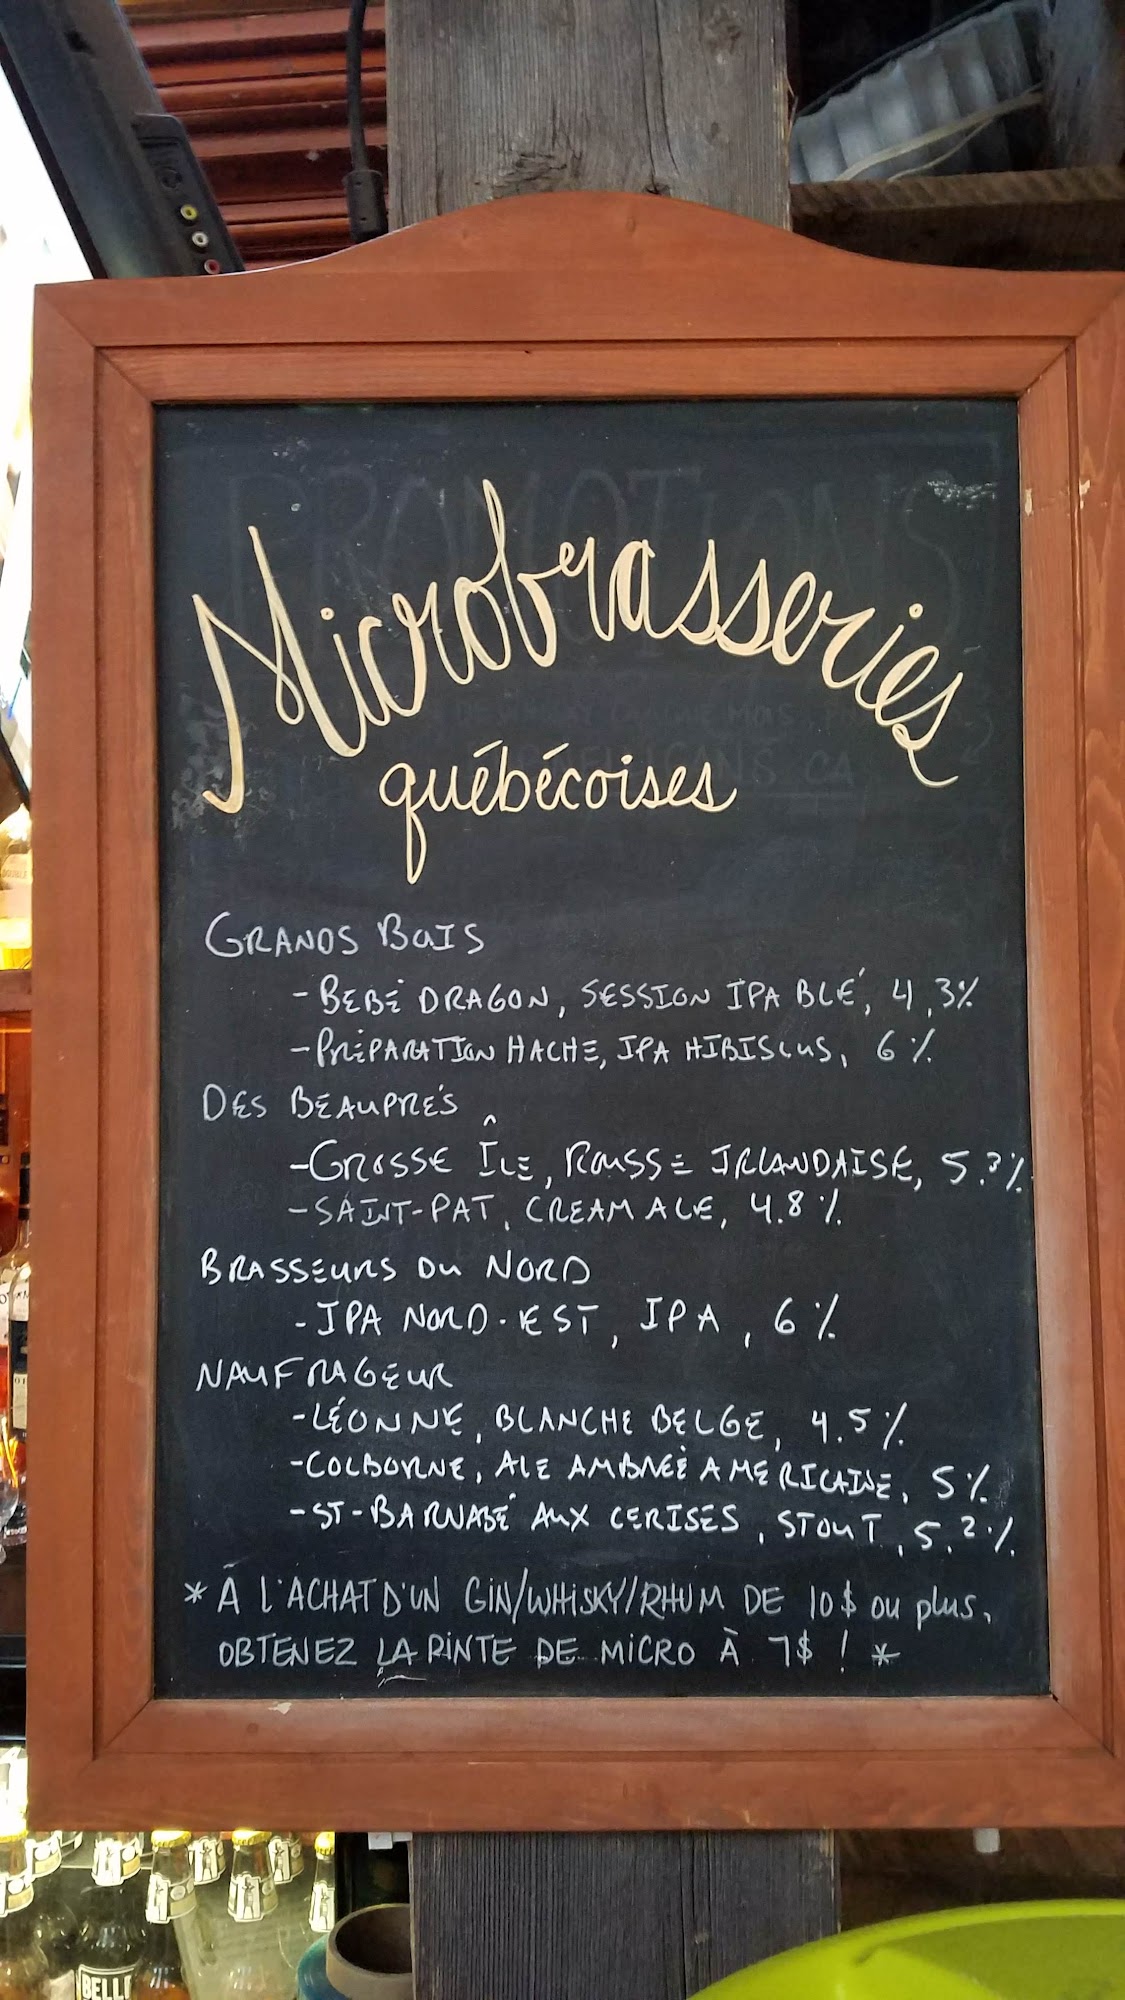 Microbrasseries
québécoises
GRANDS BOIS
- BÉBÉ DRAGON, SESSION IPA BLÉ, 4,3%
- PRÉPARATION HACHE, IPA HIBISCUS, 6%
DES BEAUPRÉS
- GROSSE ÎLE, ROUSSE IRLANDAISE, 5.3%
- SAINT-PAT, CREAM ALE, 4.8%
BRASSEURS DU NORD
- IPA NORD-EST, IPA, 6%
NAUFRAGEUR
- LÉONNE, BLANCHE BELGE, 4.5%
- COLBORNE, ALE AMBRÉE AMERICAINE, 5%
- ST-BARNABÉ AUX CERISES, STOUT, 5.2%
* À L'ACHAT D'UN GIN/WHISKY/RHUM DE 10$ ou plus,
OBTENEZ LA PINTE DE MICRO À 7$ ! *
BELL